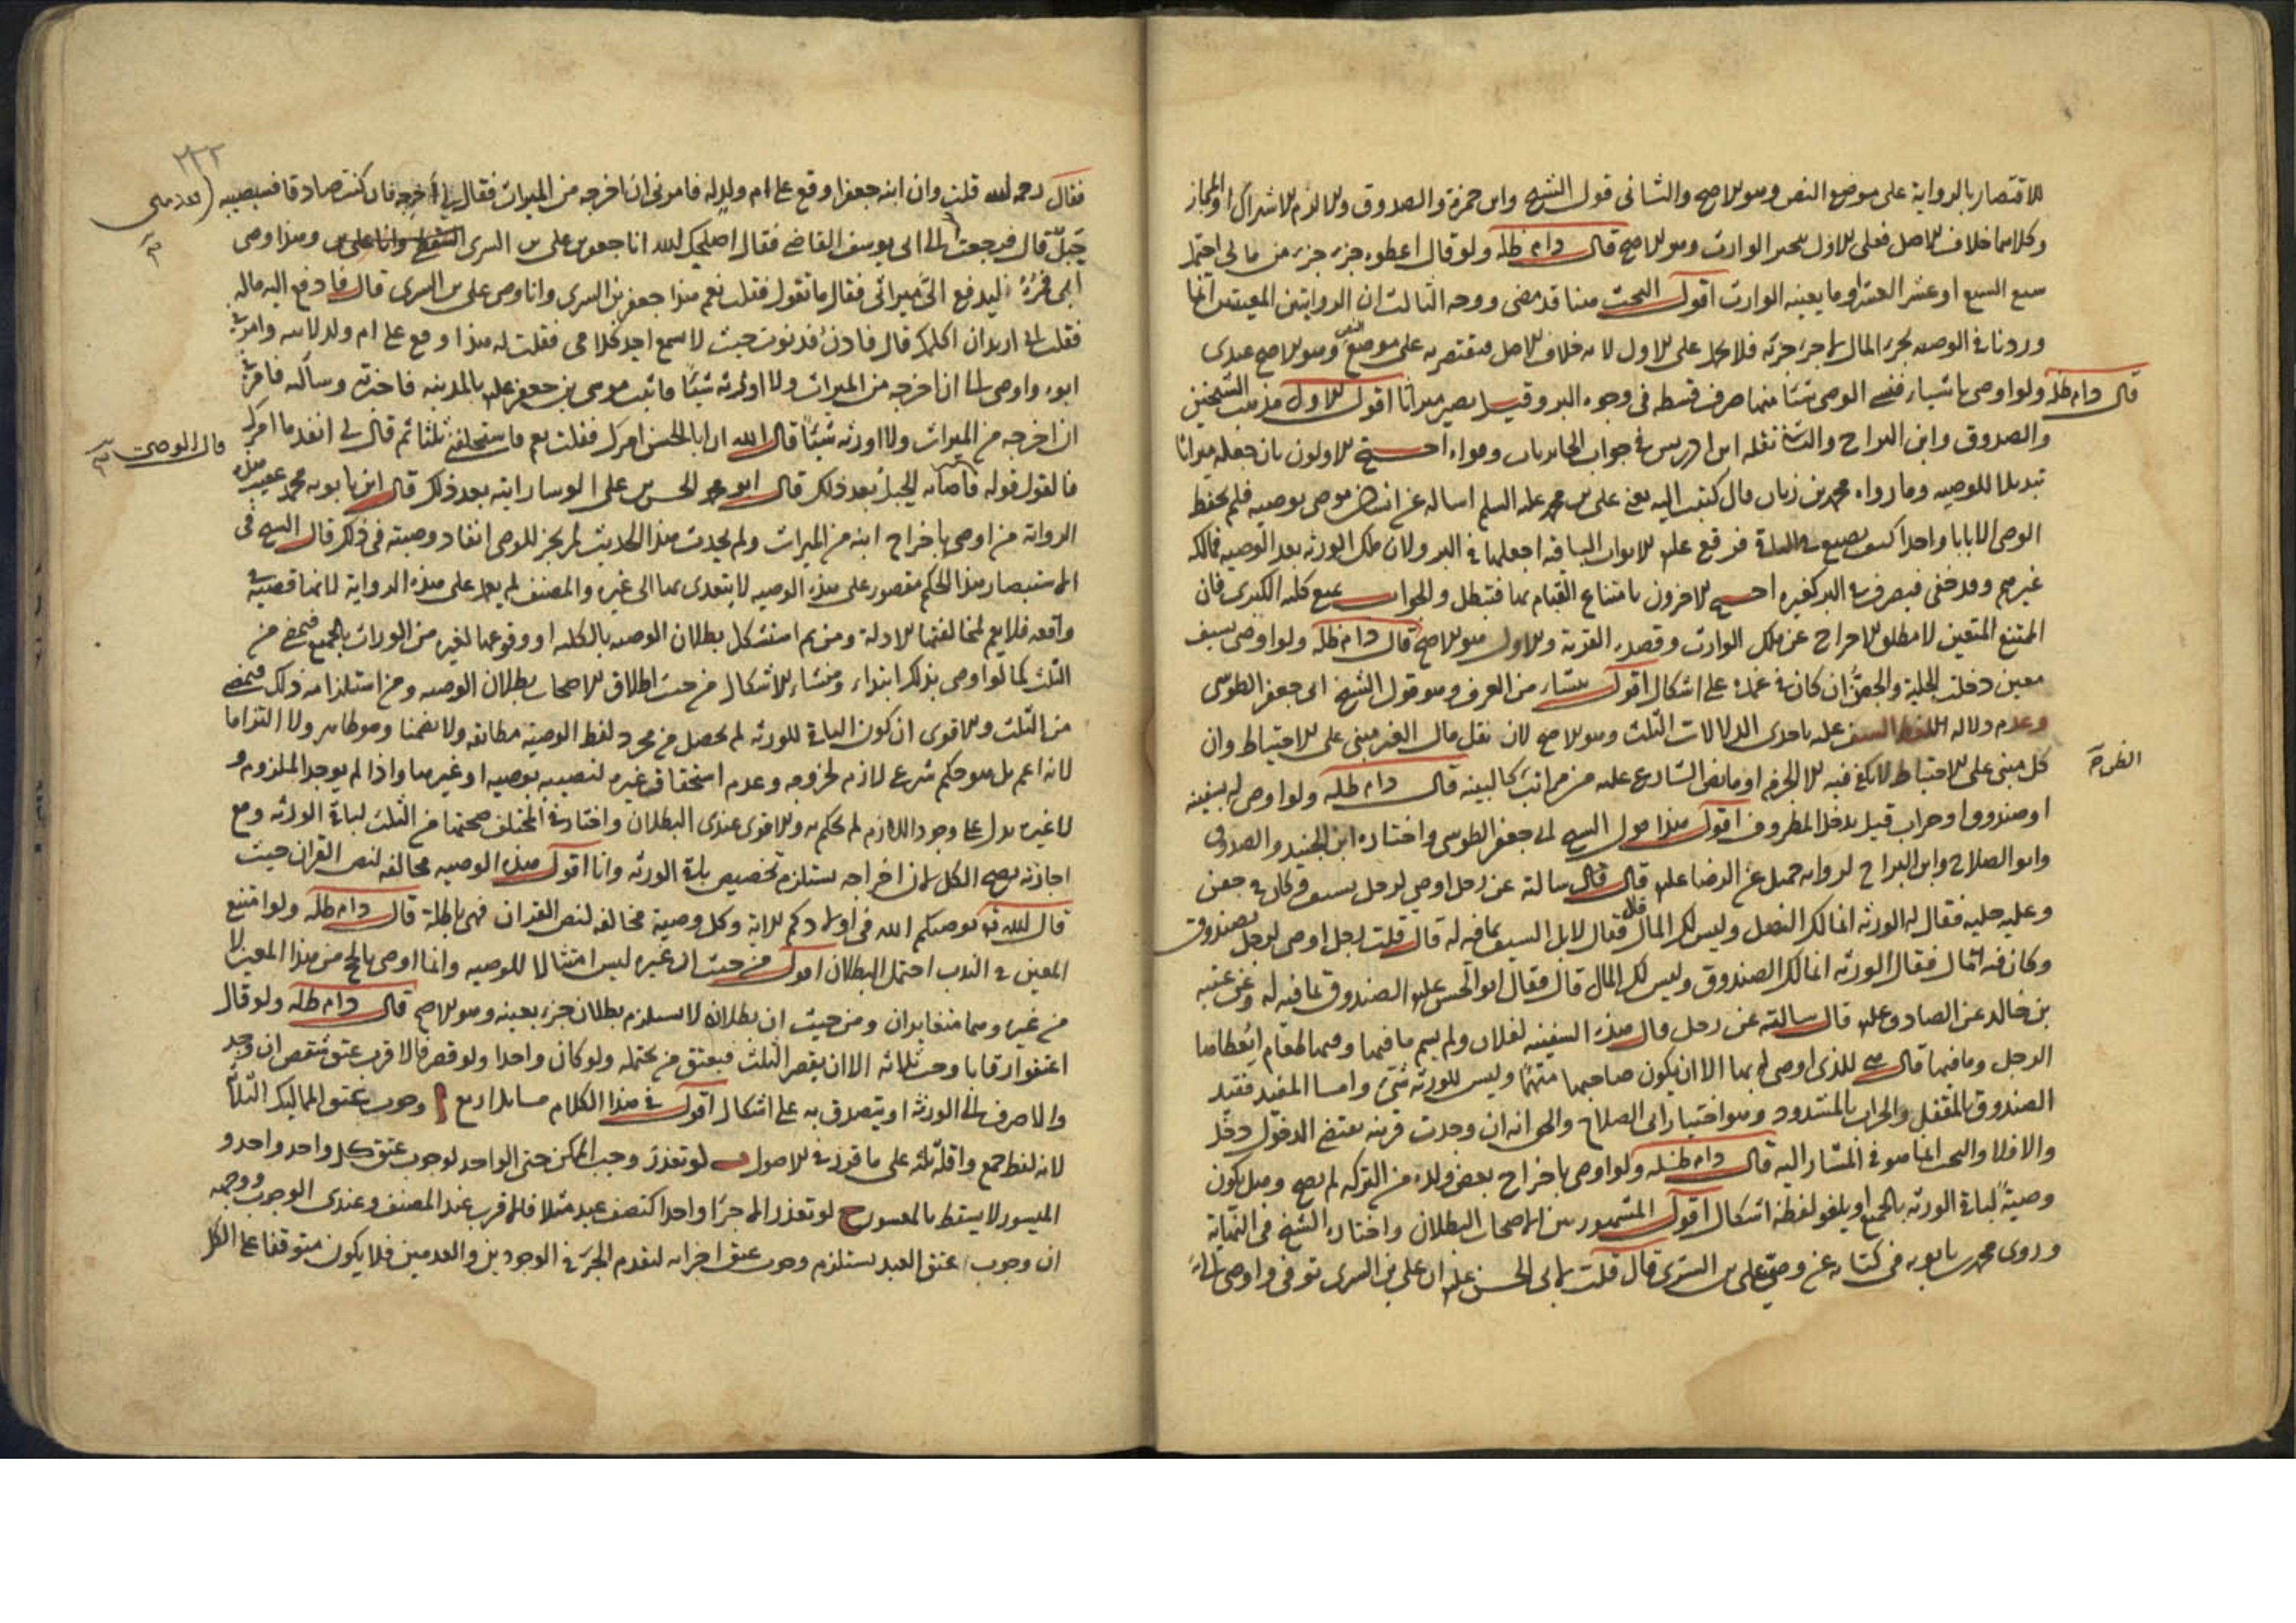 للاقتصار بالرواية على موضع النص وهو الاصح والثانى قول الشيخ وابن حمزة والصدوق والالزم الاشتراك او المجاز
وكلاهما خلاف الاصل فعلى الاول يتخير الوارث وهو الاصح قال دام ظله ولو قال اعطوه جزء جزء من مالى احتمل
سبع السبع او عشر العشر او ما يعينه الوارث اقول البحث هنا قد مضى ووجه الثالث ان الروايتين المعينتين انما
وردتا فى الوصية بجزء المال لا جزء جزئه فلا يحمل على الاول لانه خلاف الاصل فيقتصر به على موضع النص وهو الاصح عندى
قال دام ظله ولو اوصى باشياء فنسى الوصى شيئا منها صرف قسطه فى وجوه البر وقيل يصير ميراثا اقول الاول مذهب الشيخين
والصدوق وابن البراج والثانى نقله ابن ادريس فى جواب الحائريات وقواه احتج الاولون بان جعله ميراثا
تبديل للوصية وما رواه محمد بن زياد قال كتبت اليه يعنى على بن محمد عليه السلم اساله عن انسان يوصى بوصية فلم يحفظ
الوصى الا بابا واحدا كيف يصنع فى الباقى فوقع عليه الابواب الباقية اجعلها فى البر ولان ملك الورثة بعد الوصية فمالكه
غيرهم وقد خفى فيصرف فى البر كغيره احتج الاخرون بامتناع القيام بها فتبطل والجواب يمنع كلية الكبرى فان
الممتنع المتعين لا مطلق الاخراج عن ملك الوارث وقصده القربة والاول هو الاصح قال دام ظله ولو اوصى بسيف
معين دخلت الحلية والجفن ان كان فى غمده على اشكال اقول ينشأ من العرف وهو قول الشيخ ابى جعفر الطوسى
وعدم دلالة اللفظ السيف عليه باحدى الدلالات الثلث وهو الاصح لان نقل مال الغير مبنى على الاحتياط وان
كل مبنى على الاحتياط لا يكفى فيه الا الجزم او ما نص الشارع عليه من مراتب كالبينة قال دام ظله ولو اوصى له بسفينة
الظن
او صندوق او جراب قيل يدخل المظروف اقول هذا قول الشيخ ابى جعفر الطوسى واختاره ابن الجنيد والصدوق
وابو الصلاح وابن البراج لرواية جميل عن الرضا عليه قال قال سالته عن رجل اوصى لرجل بسيف وكان فى جفن
وعليه حلية فقال له الورثة انما لك النصل وليس لك المال فقال لا بل السيف بما فيه له قال قلت رجل اوصى لرجل بصندوق
وكان فيه مال فقال الورثة انما لك الصندوق وليس لك المال قال فقال ابو الحسن عليه الصندوق بما فيه له وعن عقبة
بن خالد عن الصادق عليه قال سالته عن رجل قال هذه السفينة لفلان ولم يسم ما فيها وفيها طعام ايعطاها
الرجل وما فيها قال هى للذى اوصى له بها الا ان يكون صاحبها متهما وليس للورثة شئ واما المفيد فقيد
الصندوق بالمقفل والجراب بالمشدود وهو اختيار ابى الصلاح والحق انه ان وجدت قرينة تقتضى الدخول دخل
والا فلا والبحث انما هو فى المشار اليه قال دام ظله ولو اوصى باخراج بعض ولده من التركة لم يصح وهل يكون
وصية لباقى الورثة بالجميع او يلغو لفظه اشكال اقول المشهور بين الاصحاب البطلان واختاره الشيخ فى النهاية
وروى محمد بن بابويه فى كتابه عن وصى على بن السرى قال قلت لابى الحسن عليه ان على بن السرى توفى واوصى الى
٢٣٢
فقال رحمه الله قلت وان ابنه جعفرا وقع على ام ولد له فامرنى ان اخرجه من الميراث فقال لى اخرجه فان كنت صادقا فسيصيبه
خبل قال فرجعت الى ابى يوسف القاضى فقال اصلحك الله انا جعفر بن على بن السرى وهذا وصى
ابى فمره ليدفع الى ميراثى فقال ما تقول فقلت نعم هذا جعفر بن السرى وانا وصى على بن السرى قال فادفع اليه ماله
فقلت له اريد ان اكلمك قال فادن فدنوت حيث لا يسمع احد كلامى فقلت له هذا وقع على ام ولد لابيه وامرنى
ابوه واوصى الى ان اخرجه من الميراث ولا اورثه شيئا فاتيت موسى بن جعفر عليه بالمدينة فاخبرته وسألته فامرنى
ان اخرجه من الميراث ولا اورثه شيئا قال الله ان ابا الحسن امرك فقلت نعم فاستحلفنى ثلثا ثم قال لى انفذ ما امرك
قال الوصى
فالقول قوله فاصابه الخبل بعد ذلك قال ابو محمد الحسن بن على الوشا رايته بعد ذلك قال ابن بابويه محمد عقيب هذه
الرواية من اوصى باخراج ابنه من الميراث ولم يحدث هذا الحديث لم يجز للوصى انفاذ وصيته فى ذلك قال الشيخ فى
الاستبصار هذا الحكم مقصور على هذه الوصية لا يتعدى بها الى غيره والمصنف لم يعمل على هذه الرواية لانها قضية فى
واقعة فلا يعم لمخالفتها الادلة ومن ثم استشكل بطلان الوصية بالكلية او وقوعها لغيره من الوراث بالجميع فيمضى من
الثلث كما لو اوصى بذلك ابتداء ومنشأ الاشكال من حيث اطلاق الاصحاب بطلان الوصية ومن استلزامه ذلك فيمضى
من الثلث والاقوى ان كون الباقى للورثة لم يحصل من مجرد لفظ الوصية مطابقة ولا تضمنا وهو ظاهر ولا التزاما
لانه اعم بل هو حكم شرعى لازم لخروجه وعدم استحقاق غيره لنصيبه بوصية او غيرها واذا لم يوجد الملزوم و
لا غيره يدل على وجود اللازم لم يحكم به والاقوى عندى البطلان واختار فى المختلف صحتها من الثلث لباقى الورثة ومع
اجازته يصح الكل لان اخراجه يستلزم تخصيص باقى الورثة وانا اقول هذه الوصية مخالفة لنص القران حيث
قال الله تعالى يوصيكم الله فى اولادكم الاية وكل وصية مخالفة لنص القران فهى باطلة قال دام ظله ولو امتنع
المعين فى الندب احتمل البطلان اقول من حيث ان غيره ليس امتثالا للوصية وانما اوصى بالحج من هذا المعين لا
من غيره وهما متغايران ومن حيث ان بطلانه لا يستلزم بطلان جزء بعينه وهو الاصح قال دام ظله ولو قال
اعتقوا رقابا وجب ثلاثة الا ان يقصر الثلث فيعتق من يحتمله ولو كان واحدا ولو قصر فالاقرب عتق شقص ان وجد
والا صرف الى الورثة او يتصدق به على اشكال اقول فى هذا الكلام مسايل اربع ا وجوب عتق المماليك الثلاثة
لانه لفظ جمع واقله ثلثة على ما قرر فى الاصول ب لو تعذر وجب الممكن حتى الواحد لوجوب عتق كل واحد واحد و
الميسور لا يسقط بالمعسور ج لو تعذر الا جزءا واحدا كنصف عبد مثلا فالاقرب عند المصنف وعندى الوجوب ووجهه
ان وجوب عتق العبد يستلزم وجوب عتق اجزائه لتقدم الجزء فى الوجودين والعدمين فلا يكون متوقفا على الكل